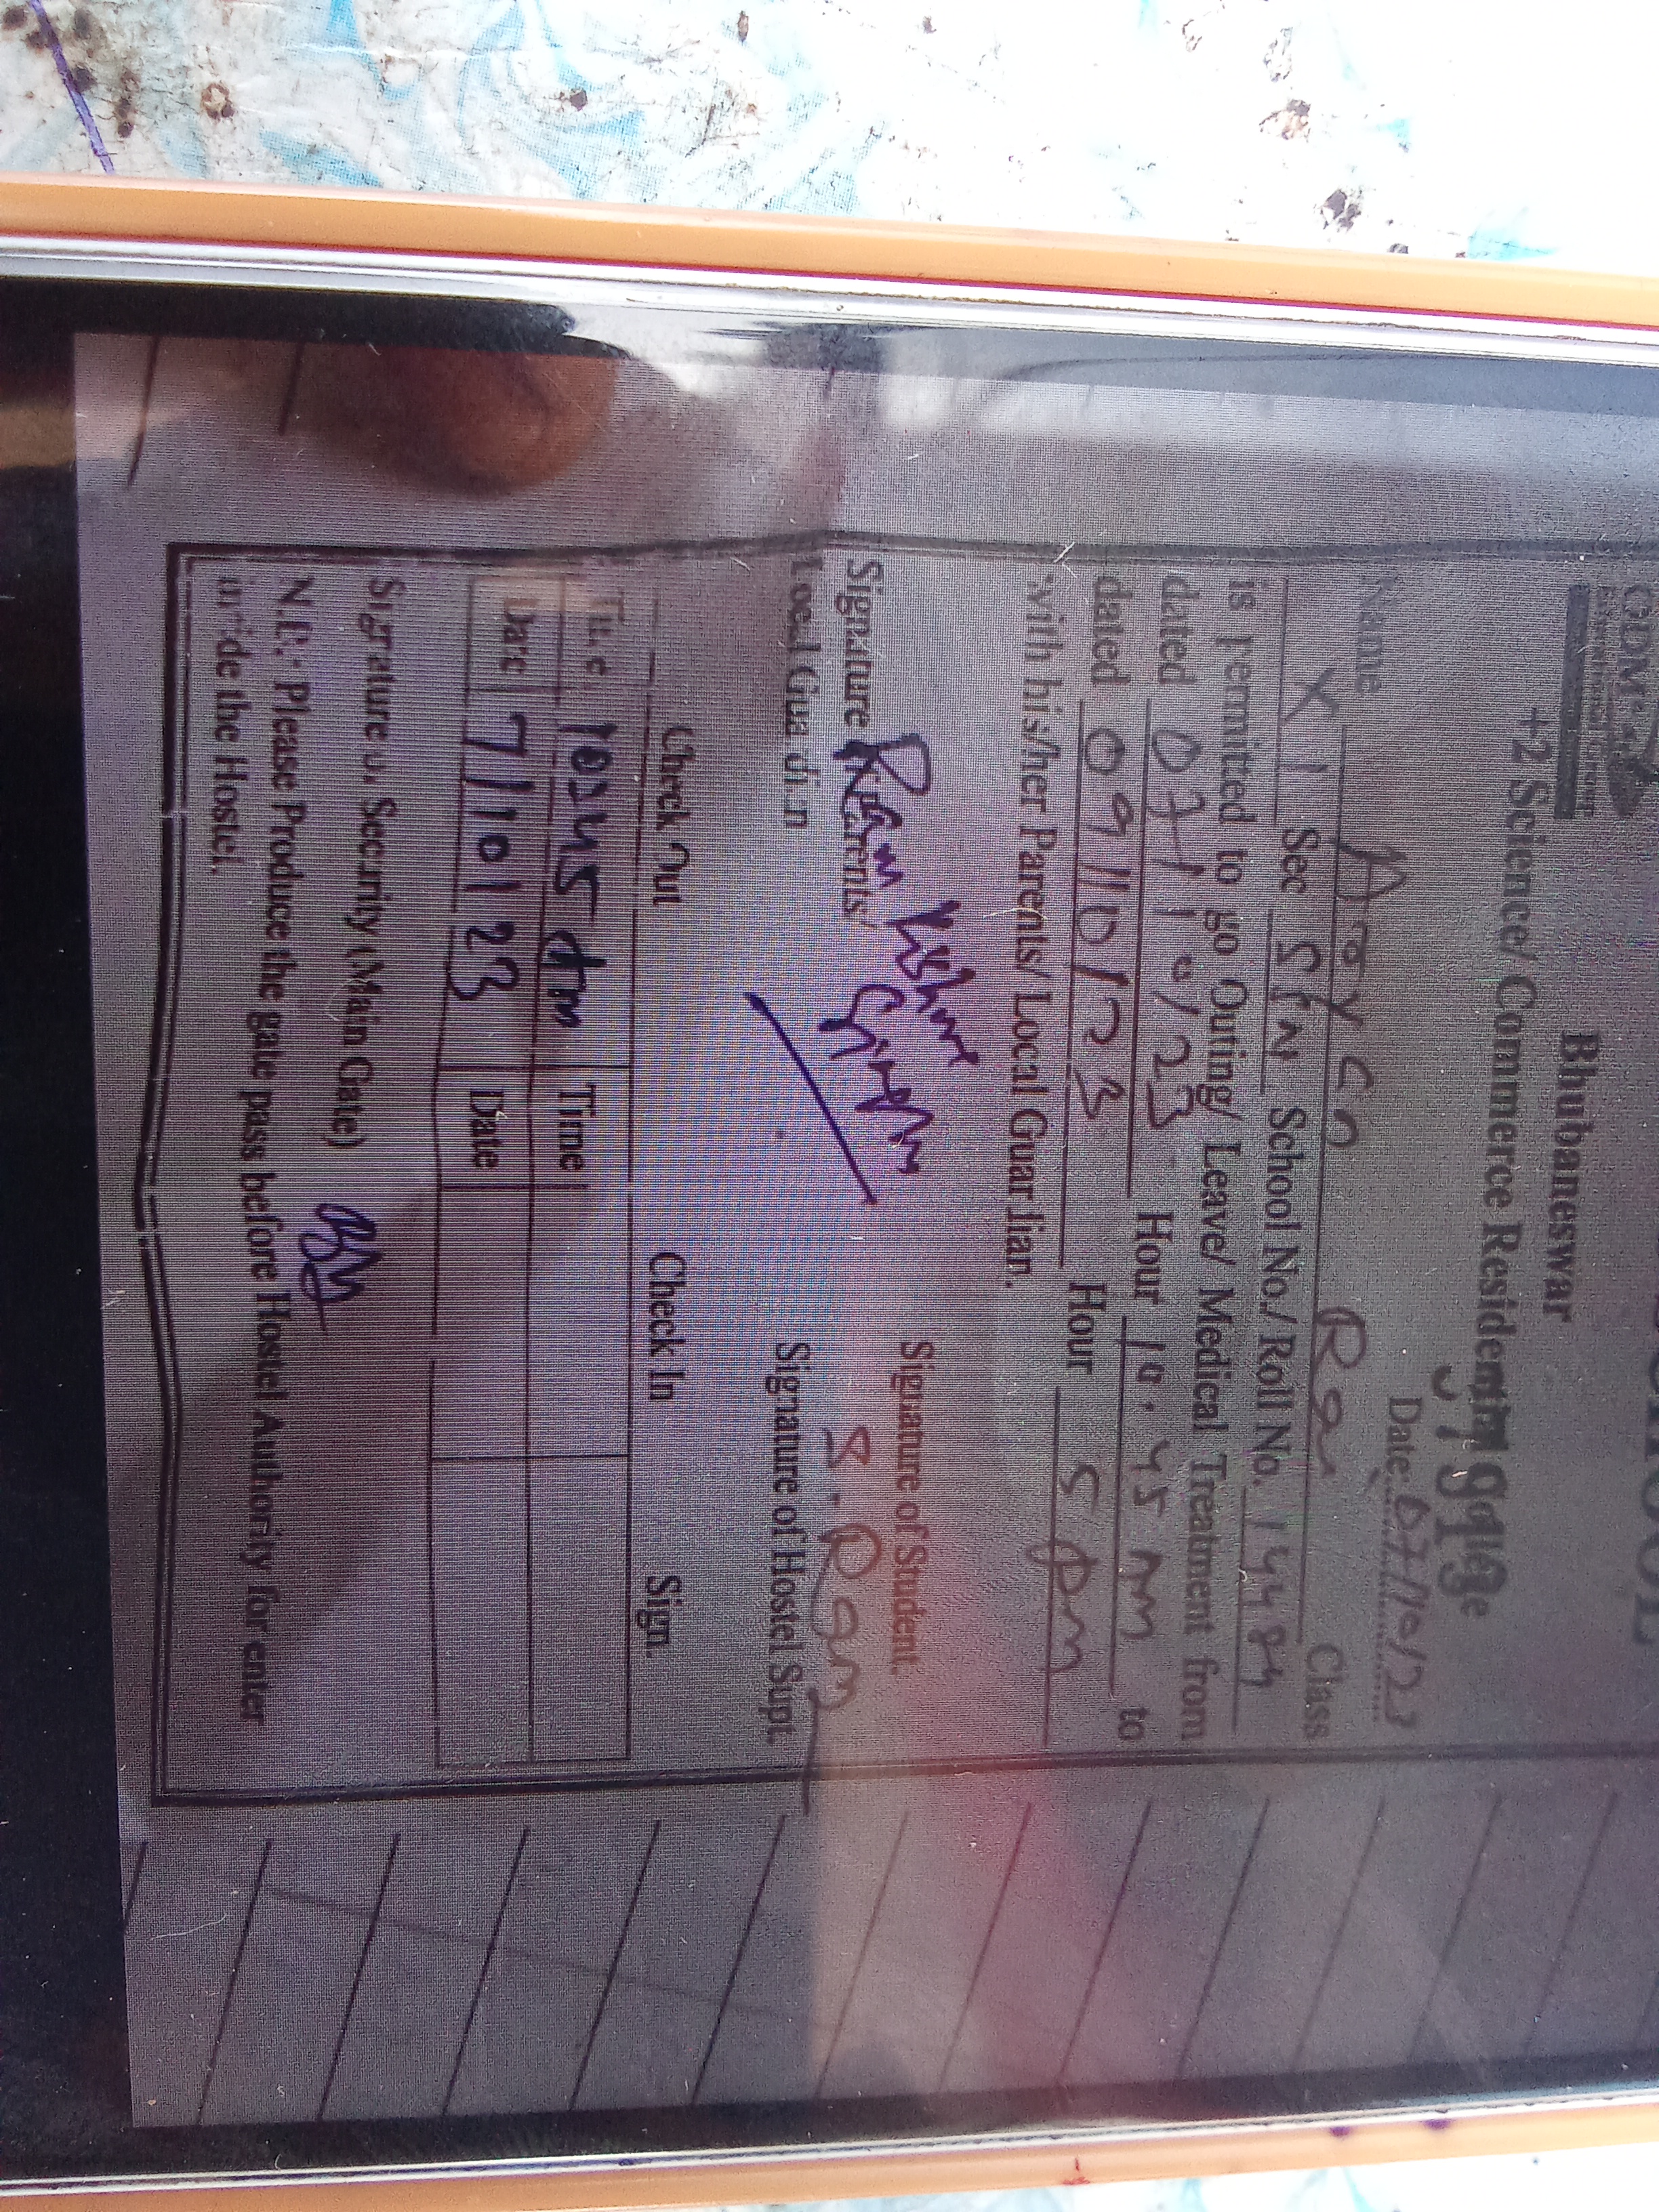 ODM
Bhubaneswar
+2 Science/ Commerce Residential
Date: 07/10/23
Name Aryan Class
XI Sec School No./ Roll No. 1484
is permitted to go Outing/ Leave/ Medical Treatment from
dated 07/10/23 Hour 10.45 to
dated 09/10/23 Hour 5 pm
with his/her Parents/ Local Guardian.
Signature of Student.
Ram
Signature Parents/
Local Guardian
Signature of Hostel Supt.
Check Out Check In Sign.
Time 10:45 Time
Date 7/10/23 Date
Signature of Security (Main Gate)
N.B.- Please Produce the gate pass before Hostel Authority for enter
inside the Hostel.